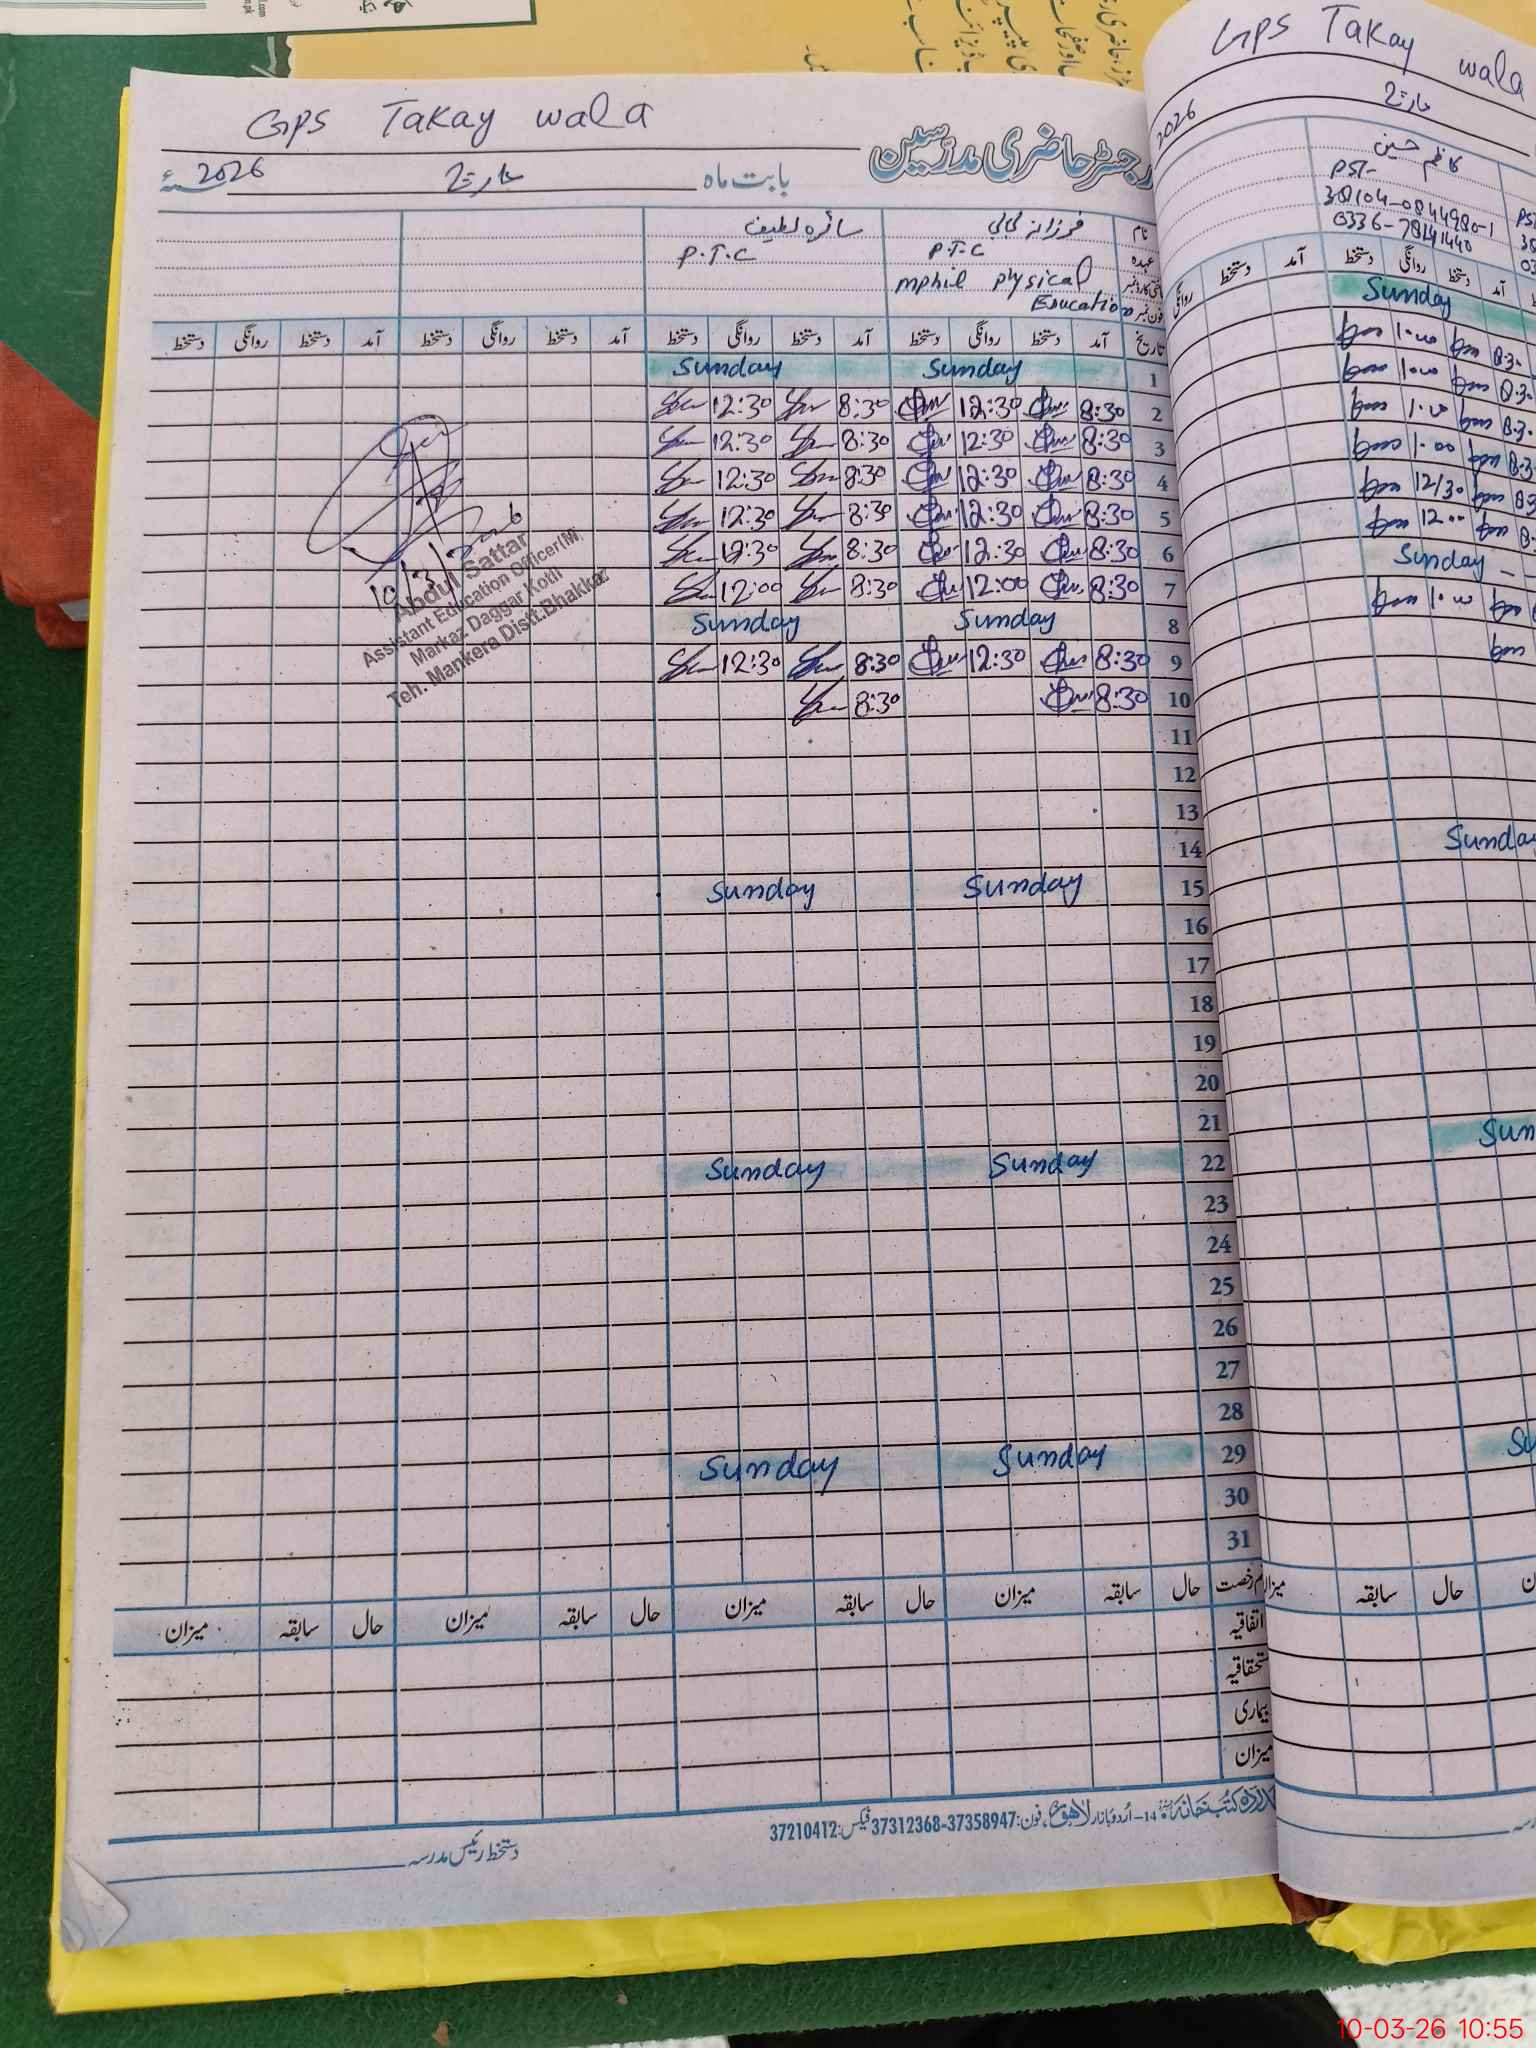 GPS Takay wala
رجسٹر حاضری مدرسین
بابت ماہ مارچ 2026ء
نام فرزانہ بی بی سائرہ لطیف
عہدہ P.T.C P.T.C
mphil physical
Education
فون نمبر
تاریخ آمد دستخط روانگی دستخط آمد دستخط روانگی دستخط آمد دستخط روانگی دستخط آمد دستخط روانگی دستخط
1 Sunday Sunday
2 8:30 12:30 8:30 12:30
3 8:30 12:30 8:30 12:30
4 8:30 12:30 8:30 12:30
5 8:30 12:30 8:30 12:30
6 8:30 12:30 8:30 12:30
7 8:30 12:00 8:30 12:00
8 Sunday Sunday
9 8:30 12:30 8:30 12:30
10 8:30 8:30
11
12
13
14
15 Sunday Sunday
16
17
18
19
20
21
22 Sunday Sunday
23
24
25
26
27
28
29 Sunday Sunday
30
31
10/3/
Abdul Sattar
Assistant Education Officer(M)
Markaz Daggar Kotli
Teh. Mankera Distt.Bhakkar
رخصت حال سابقہ میزان حال سابقہ میزان حال سابقہ میزان حال سابقہ میزان
اتفاقیہ
بیماری
میزان
کتب خانہ 14-اُردو بازار لاہور، فون: 37358947-37312368 فیکس: 37210412
دستخط رئیس مدرسہ
GPS Takay wala
2026 مارچ
کاظم حسین
PST
38104-0844980-1
آمد دستخط روانگی دستخط آمد دستخط روانگی
Sunday
8:30 1:00
1:00
1:00
1:00
12/30
12:00
Sunday
1:00
Sunday
میزان سابقہ حال
10-03-26 10:55